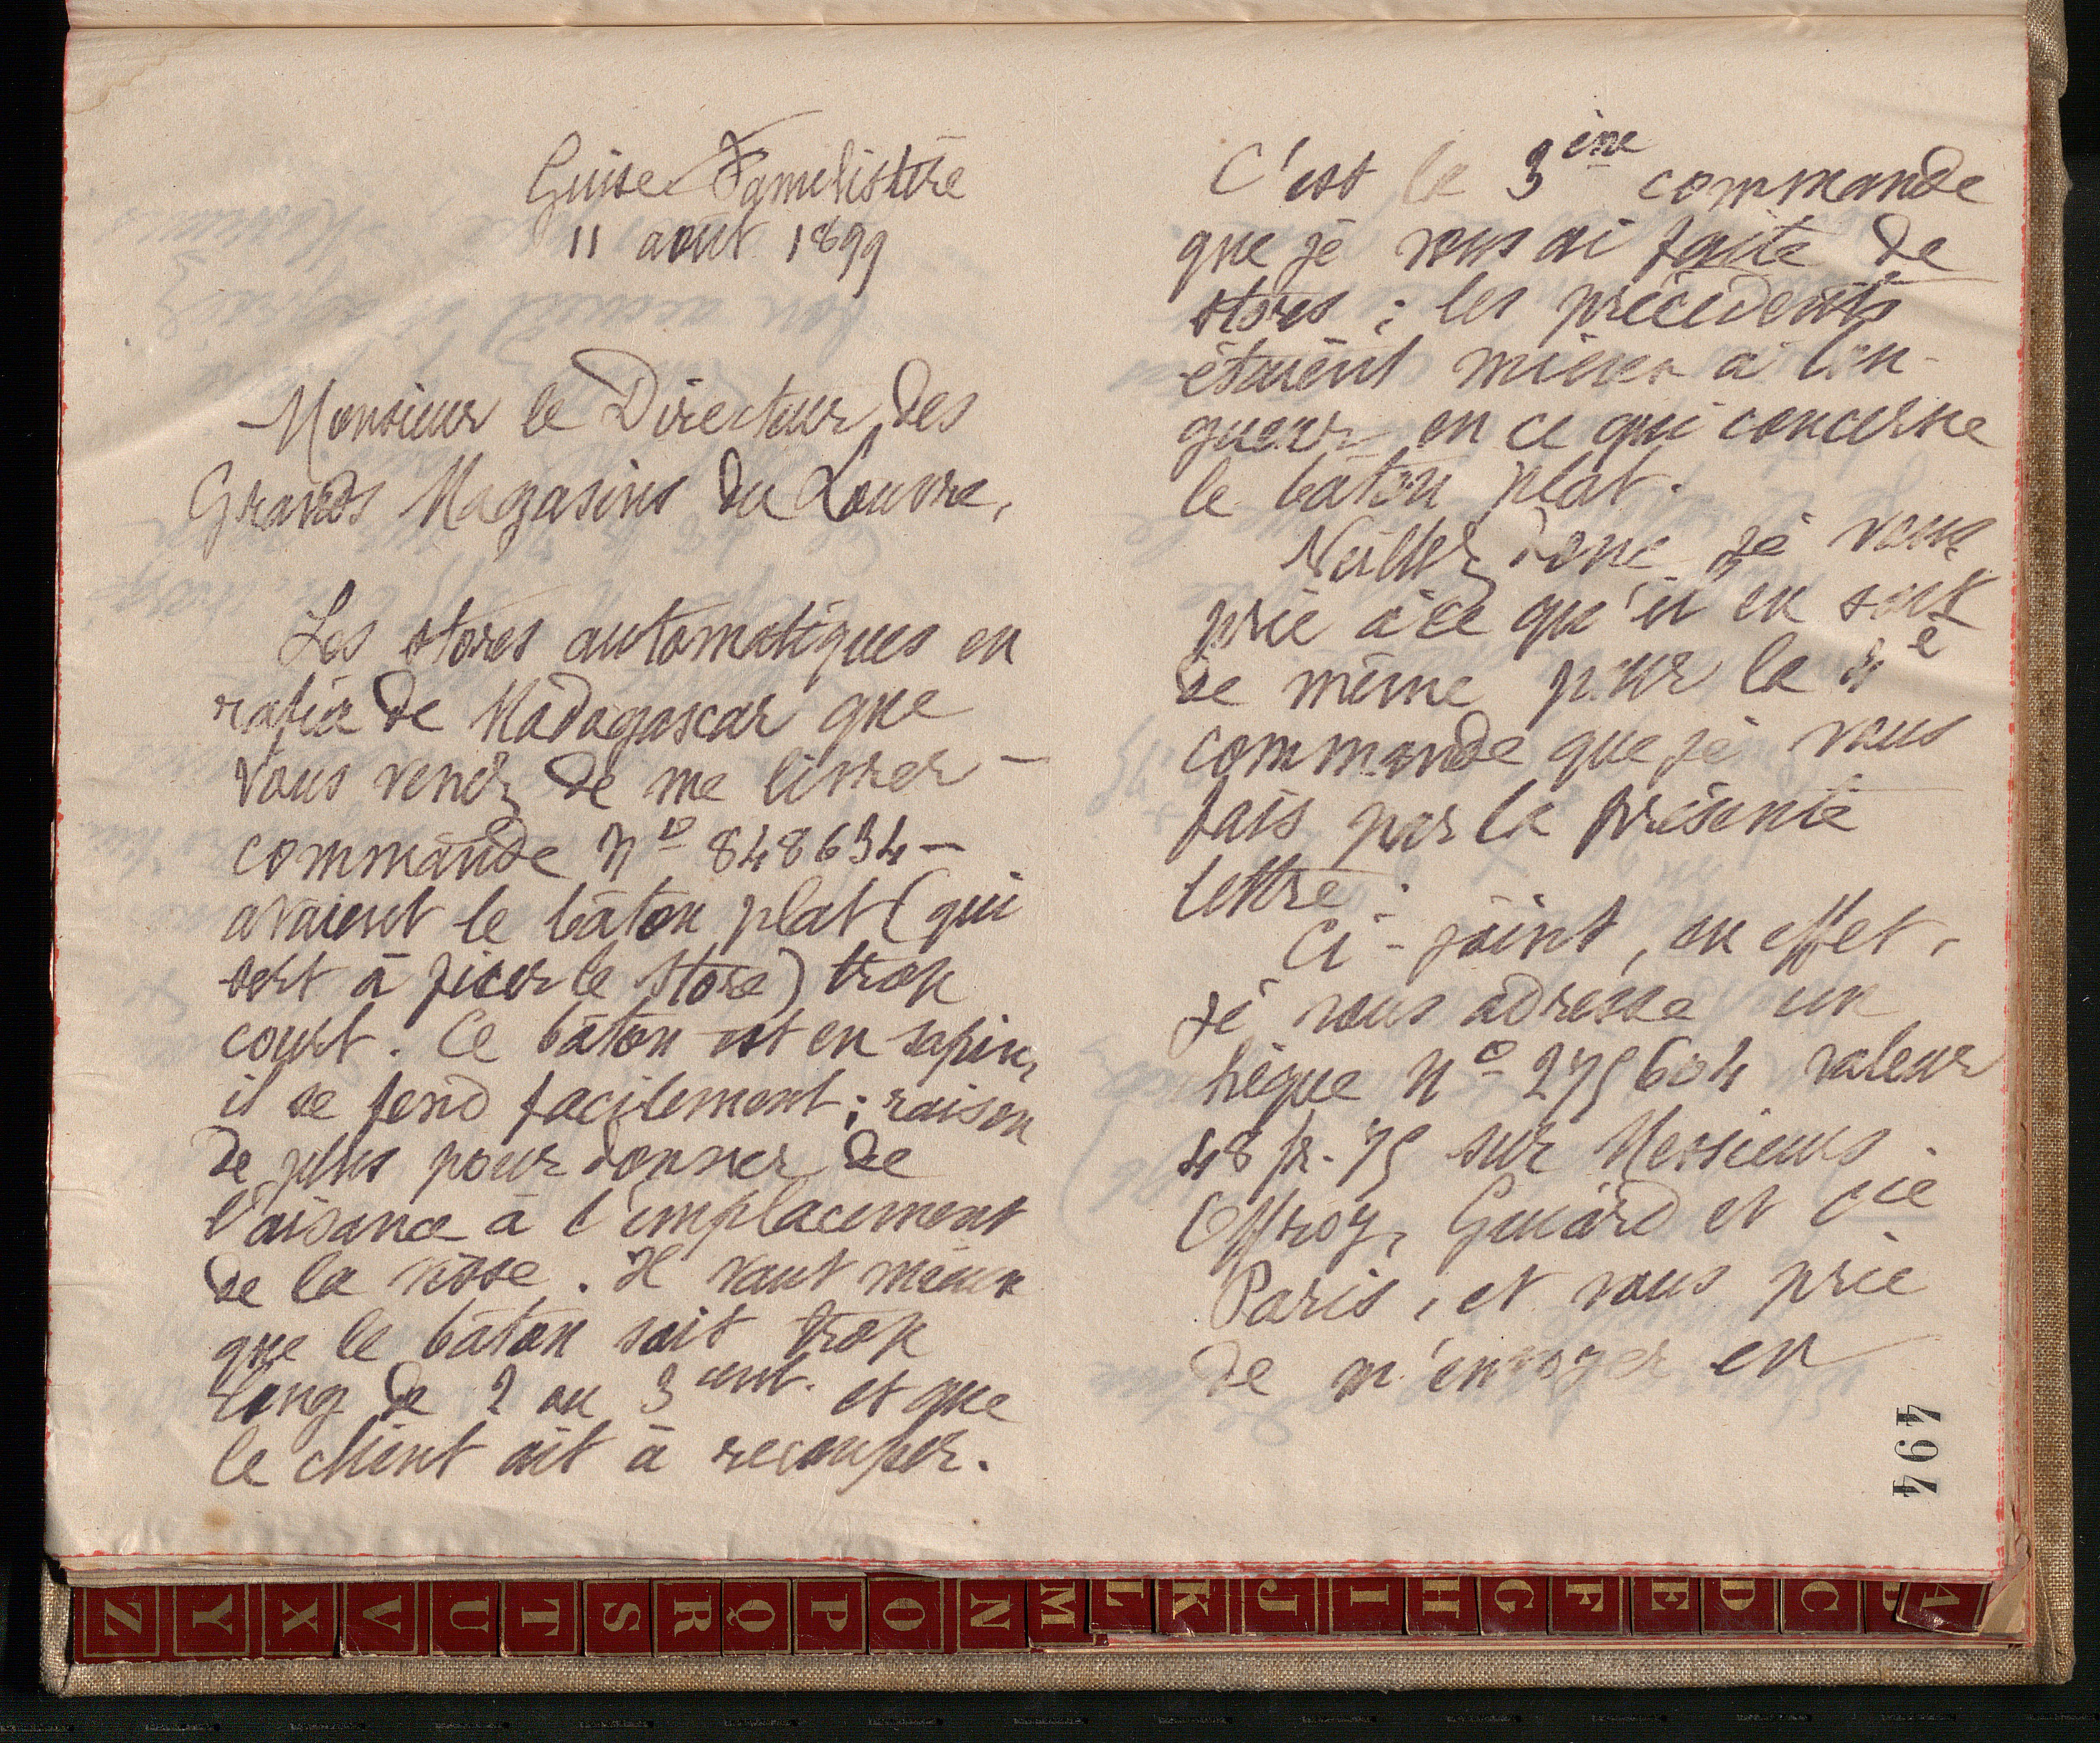 Guise Familistère
11 août 1899
Monsieur le Directeur des
Grands Magasins du Louvre,
Les stores automatiques en
rafia de Madagascar que
vous venez de me livrer -
commande nº 848634 -
avaient le bâton plat (qui
sert à fixer le store) trop
court. Ce bâton est en sapin,
il se fend facilement ; raison
de plus pour donner de
l'aisance à l'emplacement
de la visse. Il vaut mieux
que le bâton soit trop
long de 2 ou 3 cent. et que
le client ait à recouper.
C'est la 3ème commande
que je vous ai faite de
stores ; les précédents
étaient mieux à lon-
gueur en ce qui concerne
le bâton plat.
Veillez donc je vous
prie à ce qu'il en soit
de même pour la 4e
commande que je vous
fais par la présente
lettre.
Ci-joint, en effet,
je vous adresse un
chèque nº 275604 valeur
48 fr. 75 sur Messieurs
Offroy, Guiard et Cie
Paris, et vous prie
de m'envoyer en
494
Z Y X V U T S R Q P O N M L K J I H G F E D C B A